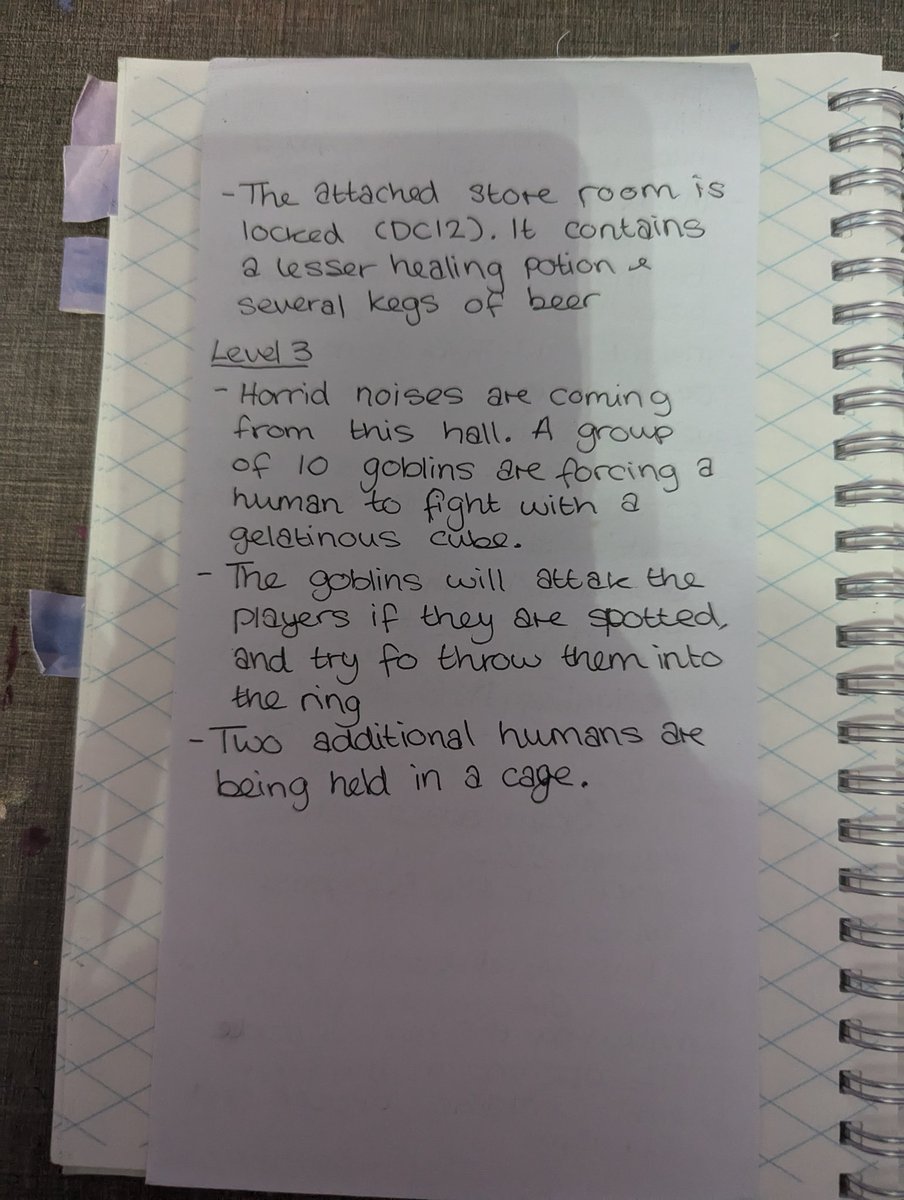 - The attached store room is
locked (DC12). It contains
a lesser healing potion &
several kegs of beer
Level 3
- Horrid noises are coming
from this hall. A group
of 10 goblins are forcing a
human to fight with a
gelatinous cube.
- The goblins will attak the
players if they are spotted,
and try fo throw them into
the ring
- Two additional humans are
being held in a cage.